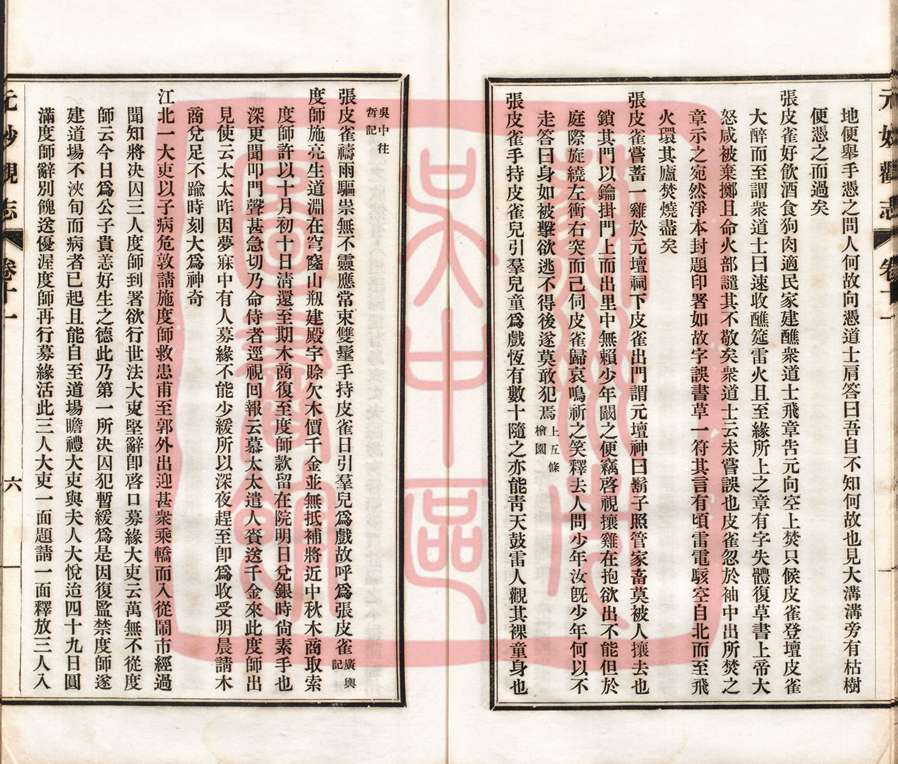 地便舉手憑之問人何故向憑道士肩答曰吾自不知何故也見大溝溝旁有枯樹
便憑之而過矣
張皮雀好飲酒食狗肉適民家建醮衆道士飛章吿元向空上焚只候皮雀登壇皮雀
大醉而至謂衆道士曰速收醮筵雷火且至緣所上之章有字失體復草書上帝大
怒咸被棄擲且命火部譴其不敬矣衆道士云未嘗誤也皮雀忽於袖中出所焚之
章示之宛然淨本封題印署如故字誤書草一符其言有頃雷電駭空自北而至飛
火環其廬焚燒盡矣
張皮雀嘗蓄一雞於元壇祠下皮雀出門謂元壇神曰鬍子照管家畜莫被人攘去也
鎖其門以鑰掛門上而出里中無賴少年闞之便竊啓視攘雞在抱欲出不能但於
庭際旋繞左衝右突而已伺皮雀歸哀鳴祈之笑釋去人問少年汝旣少年何以不
走答曰身如被擊欲逃不得後遂莫敢犯焉上五條檜園
張皮雀手持皮雀兒引羣兒童爲戲恆有數十隨之亦能靑天鼓雷人觀其裸童身也
吳中往哲記
張皮雀禱雨驅祟無不靈應常束雙髽手持皮雀日引羣兒爲戲故呼爲張皮雀廣輿記
度師施亮生道淵在穹窿山剏建殿宇賒欠木價千金並無抵補將近中秋木商取索
度師許以十月初十日淸還至期木商復至度師款留在院明日兌銀時尙素手也
深更聞叩門聲甚急切乃命侍者逕視回報云慕太太遣人賫送千金來此度師出
見使云太太昨因夢寐中有人募緣不能少緩所以深夜趕至卽爲收受明晨請木
商兌足不踰時刻大爲神奇
江北一大吏以子病危敦請施度師救患甫至郭外出迎甚衆乘轎而入從鬧市經過
聞知將決囚三人度師到署欲行世法大吏堅辭卽啓口募緣大吏云萬無不從度
師云今日爲公子貴恙好生之德此乃第一所決囚犯暫緩爲是因復監禁度師遂
建道場不浹旬而病者已起且能自至道場瞻禮大吏與夫人大悅迨四十九日圓
滿度師辭別餽送優渥度師再行募緣活此三人大吏一面題請一面釋放三人入
元妙觀志
卷十一
六